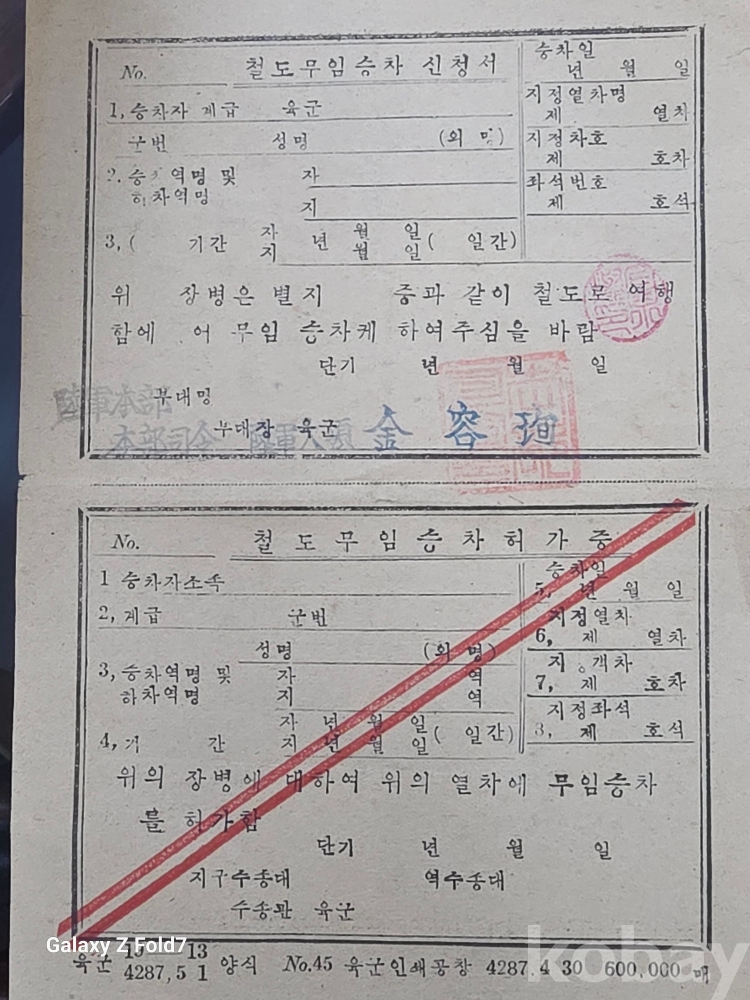 No. 철도무임승차 신청서
승차일
년 월 일
1, 승차자 계급 육군
지정열차명
제 열차
군번 성명 (외 명)
지정차호
제 호차
2. 승차역명 및 자
하차역명 지
좌석번호
제 호석
3, ( 기간 자 년 월 일 ( 일간)
지 월 일
위 장병은 별지 증과 같이 철도로 여행
함에 어 무임 승차케 하여주심을 바람
단기 년 월 일
부대명
陸軍本部
부대장 육군
本部司令 陸軍大領 金容珣
No. 철도무임승차허가증
승차일
5, 년 월 일
1 승차자소속
2, 계급 군번
지정열차
6, 제 열차
성명 (외 명)
3, 승차역명 및 자 역
하차역명 지 역
지 객차
7, 제 호차
지정좌석
제 호석
4, 기 간 자 년 월 일 ( 일간)
지 년 월 일
위의 장병에 대하여 위의 열차에 무임승차
를 허가함
단기 년 월 일
지구수송대 역수송대
수송관 육군
육군 15 13
4287,5 1 양식 No.45 육군인쇄공창 4287.4 30 600,000 매
Galaxy Z Fold7
kobay